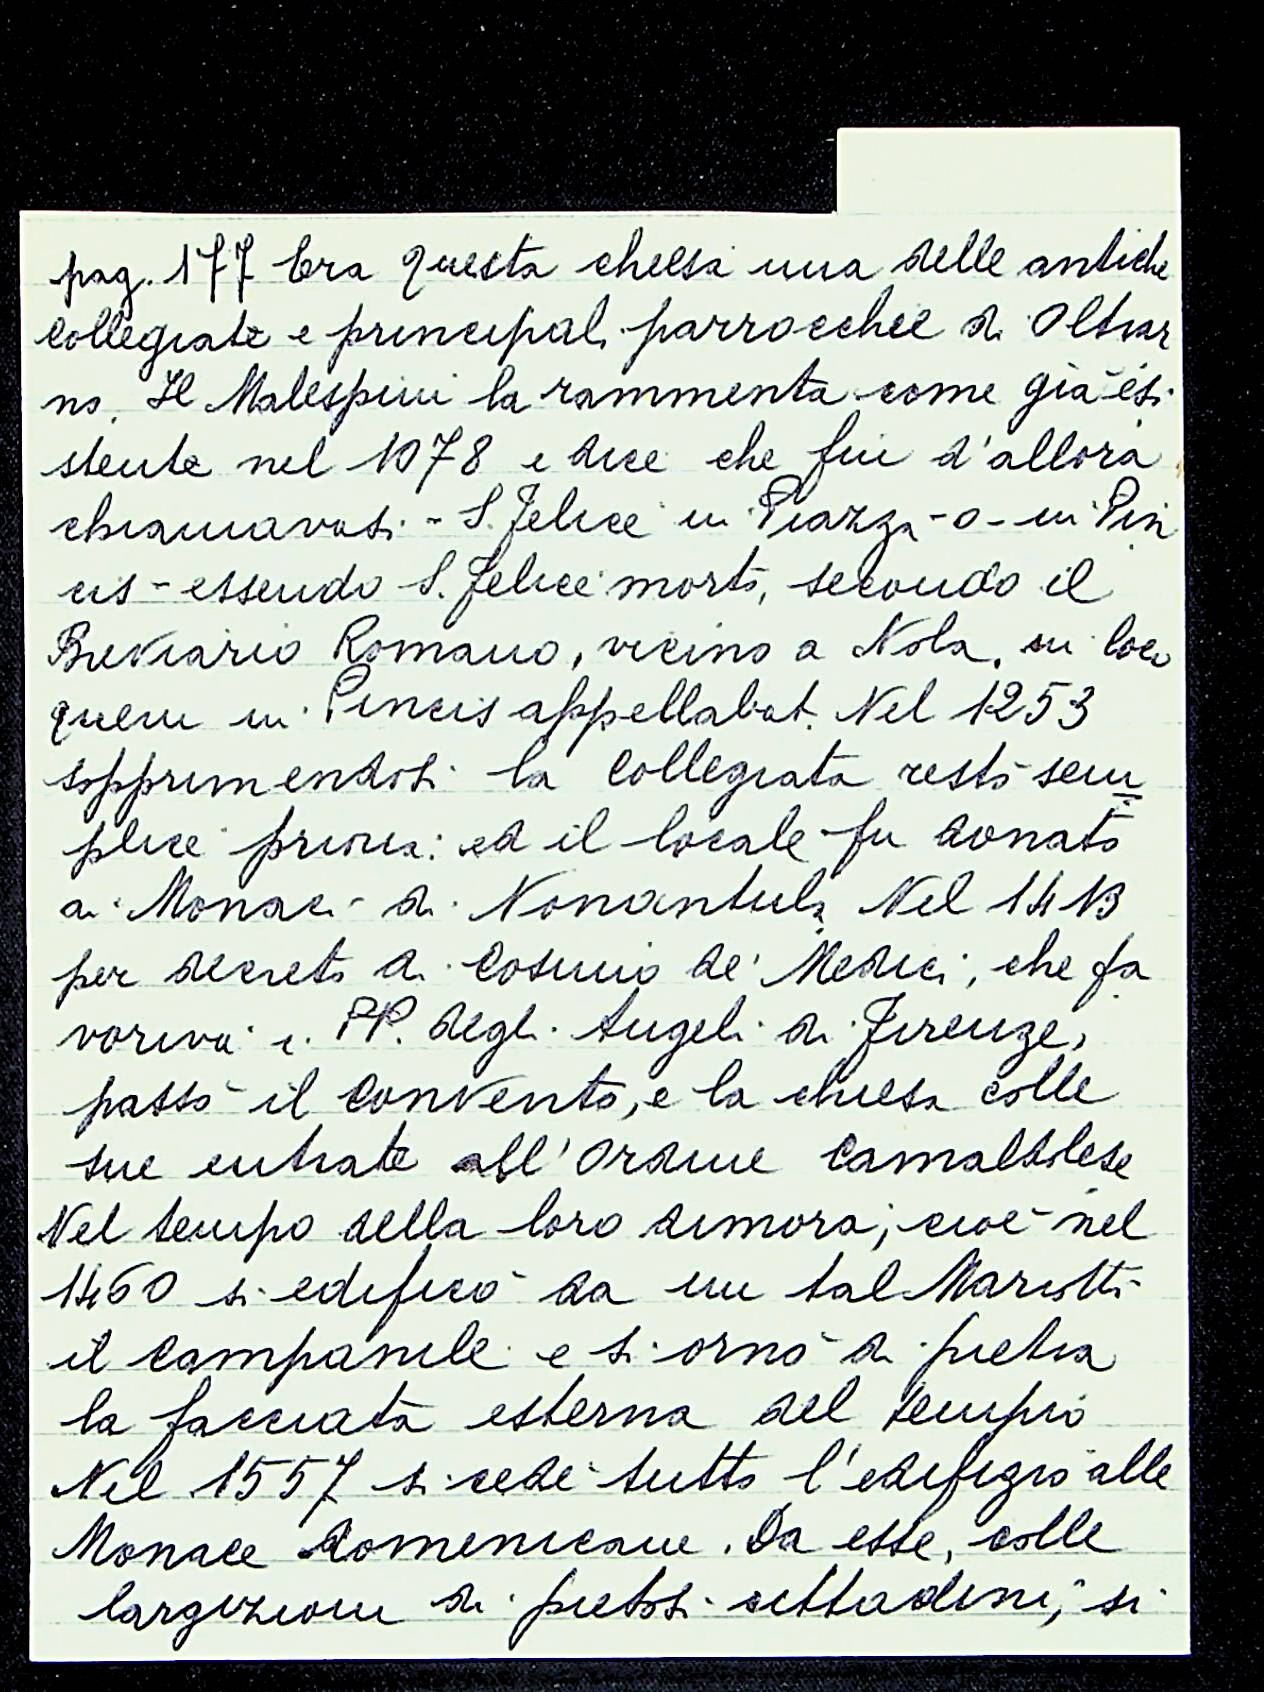 pag. 177 Era questa chiesa una delle antiche
Collegiate e principali parrocchie di Oltrar
no. Il Malespini la rammenta come già esi
stente nel 1078 e dice che fin d'allora
chiamavasi - S. Felice in Piazza - o - in Pin
cis - essendo S. Felice morto, secondo il
Breviario Romano, vicino a Nola, in loco
quem in Pincis appellabat. Nel 1253
sopprimendosi la Collegiata restò sem
plice prioria: ed il locale fu donato
ai Monaci di Nonantula Nel 1413
per decreto di Cosimo de' Medici, che fa
voriva i PP. degli Angeli di Firenze,
passò il Convento, e la chiesa colle
sue entrate all'Ordine Camaldolese
Nel tempo della loro dimora; cioè nel
1460 si edificò da un tal Mariotti
il Campanile e si ornò di pietra
la facciata esterna del tempio
Nel 1557 si cedè tutto l'edifizio alle
Monace Domenicane. Da esse, colle
largizioni di pietosi cittadini, si